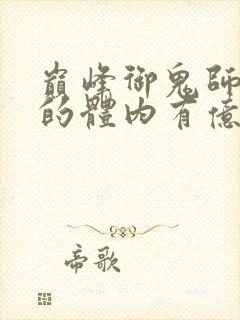 巔峰御鬼師
的體內有億
帝歌